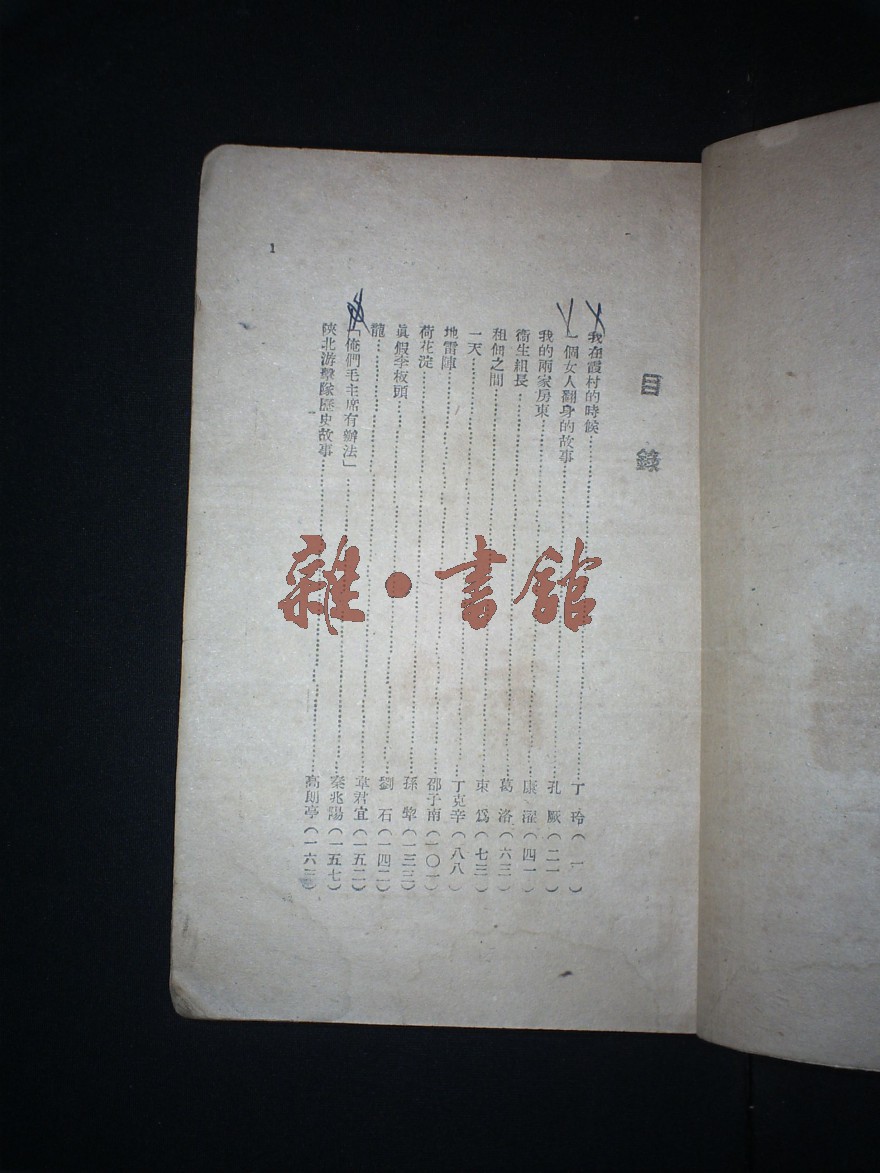 目錄
我在霞村的時候……丁玲(一)
一個女人翻身的故事……孔厥(二一)
我的兩家房東……康濯(四一)
衛生組長……葛洛(六三)
租佃之間……束爲(七三)
一天……丁克辛(八八)
地雷陣……邵子南(一〇一)
荷花淀……孫犂(一三三)
眞假李板頭……劉石(一四二)
龍……韋君宜(一五二)
「俺們毛主席有辦法」……秦兆陽(一五七)
陝北游擊隊歷史故事……高朗亭(一六三)
1
雜·書館